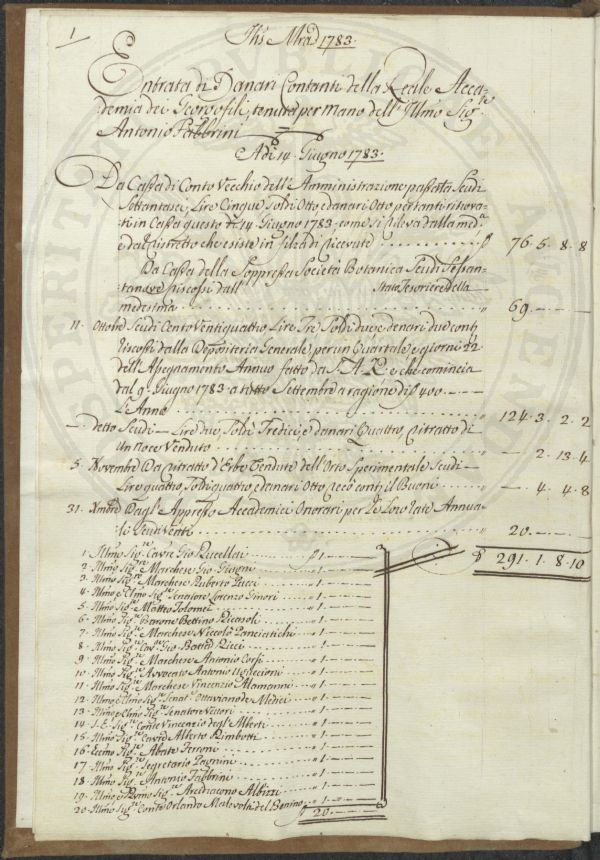 1
Ihs Mra 1783.
Entrata di Danari Contanti della Reale Acca-
demia dei Georgofili, tenuta per mano dell' Illmo Sigre
Antonio Fabbrini
Adi 14. Giugno 1783.
Da Cassa di Conto Vecchio dell' Amministrazione passata Scudi
Settantasei, Lire Cinque Soldi Otto e danari Otto per tanti ritrova-
ti in Cassa questo dì 14 Giugno 1783. come si rileva dalla meda
e dal ristretto che esiste in filza di ricevute 76. 5. 8. 8
Da Cassa della Soppressa Società Botanica Scudi Sessan-
tanove riscossi dall' Stata Tesoriere della
medesima 69. — — —
11. Ottobre Scudi Cento Ventiquattro Lire Tre Soldi due e denari due conti
riscossi dalla Depositeria Generale, per un Quartale, e giorni 22
dell' Assegnamento Annuo fatto da S. A. R. e che comincia
dal 9. Giugno 1783. a tutto Settembre a ragione di 400. — — —
L' Anno 124. 3. 2. 2
— detto Scudi — Lire due, Soldi Tredici e danari Quattro, ritratto di
Un Noce Venduto —. 2. 13. 4
5. Novembre Da ritratto d' Erbe Vendute dell' Orto Sperimentale Scudi —
Lire quattro, Soldi quattro, e danari Otto recò conti il Buoni —. 4. 4. 8
31. Xmbre Dagl' Appresso Accademici Onorari per Le Loro rate Annua-
li Scudi Venti 20. — — —
291. 1. 8. 10
1. Illmo Sigre Cavre Gio Rucellai 1. — — —
2. Illmo Sigre Marchese Gio Giugni 1. — — —
3. Illmo Sigre Marchese Ruberto Pucci 1. — — —
4. Illmo e Clmo Sigre Senatore Lorenzo Ginori 1. — — —
5. Illmo Sigre Matteo Tolomei 1. — — —
6. Illmo Sigre Barone Bettino Ricasoli 1. — — —
7. Illmo Sigre Marchese Niccolò Panciatichi 1. — — —
8. Illmo Sigre Cave Gio Batta Ricci 1. — — —
9. Illmo Sigre Marchese Antonio Corsi 1. — — —
10. Illmo Sigre Avvocato Antonio Uguccioni 1. — — —
11. Illmo Sigre Marchese Vincenzio Alamanni 1. — — —
12. Illmo e Clmo Sigre Senatre Ottaviano de Medici 1. — — —
13. Illmo e Clmo Sigre Senatore Vettori 1. — — —
14. S. E. Sigre Conte Vincenzio degl' Alberti 1. — — —
15. Illmo Sigre Cavre Alberto Rimbotti 1. — — —
16. Eccmo Sigre Abate Ferroni 1. — — —
17. Illmo Sigre Segretario Pagnini 1. — — —
18. Illmo Sigre Antonio Fabbrini 1. — — —
19. Illmo e Rmo Sigre Arcidiacono Albizzi 1. — — —
20. Illmo Sigre Conte Orlando Malevolti del Benino 1. — — —
20. — — —